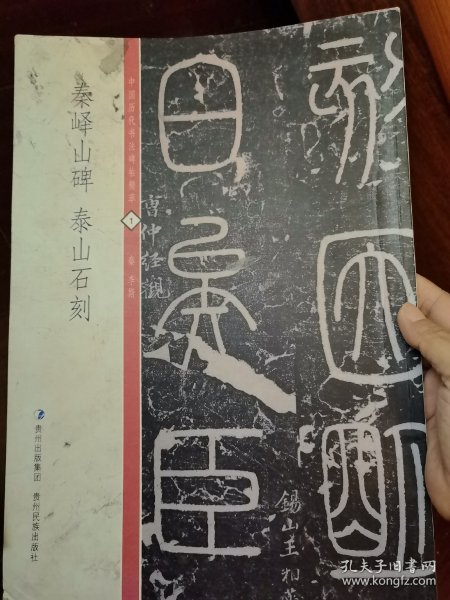 秦峄山碑 泰山石刻
贵州出版集团 贵州民族出版社
中国历代书法碑帖精萃
1
秦 李斯
曹仲经观
刻因明
臣
锡山王
孔夫子旧书网
https://www.kongfz.com